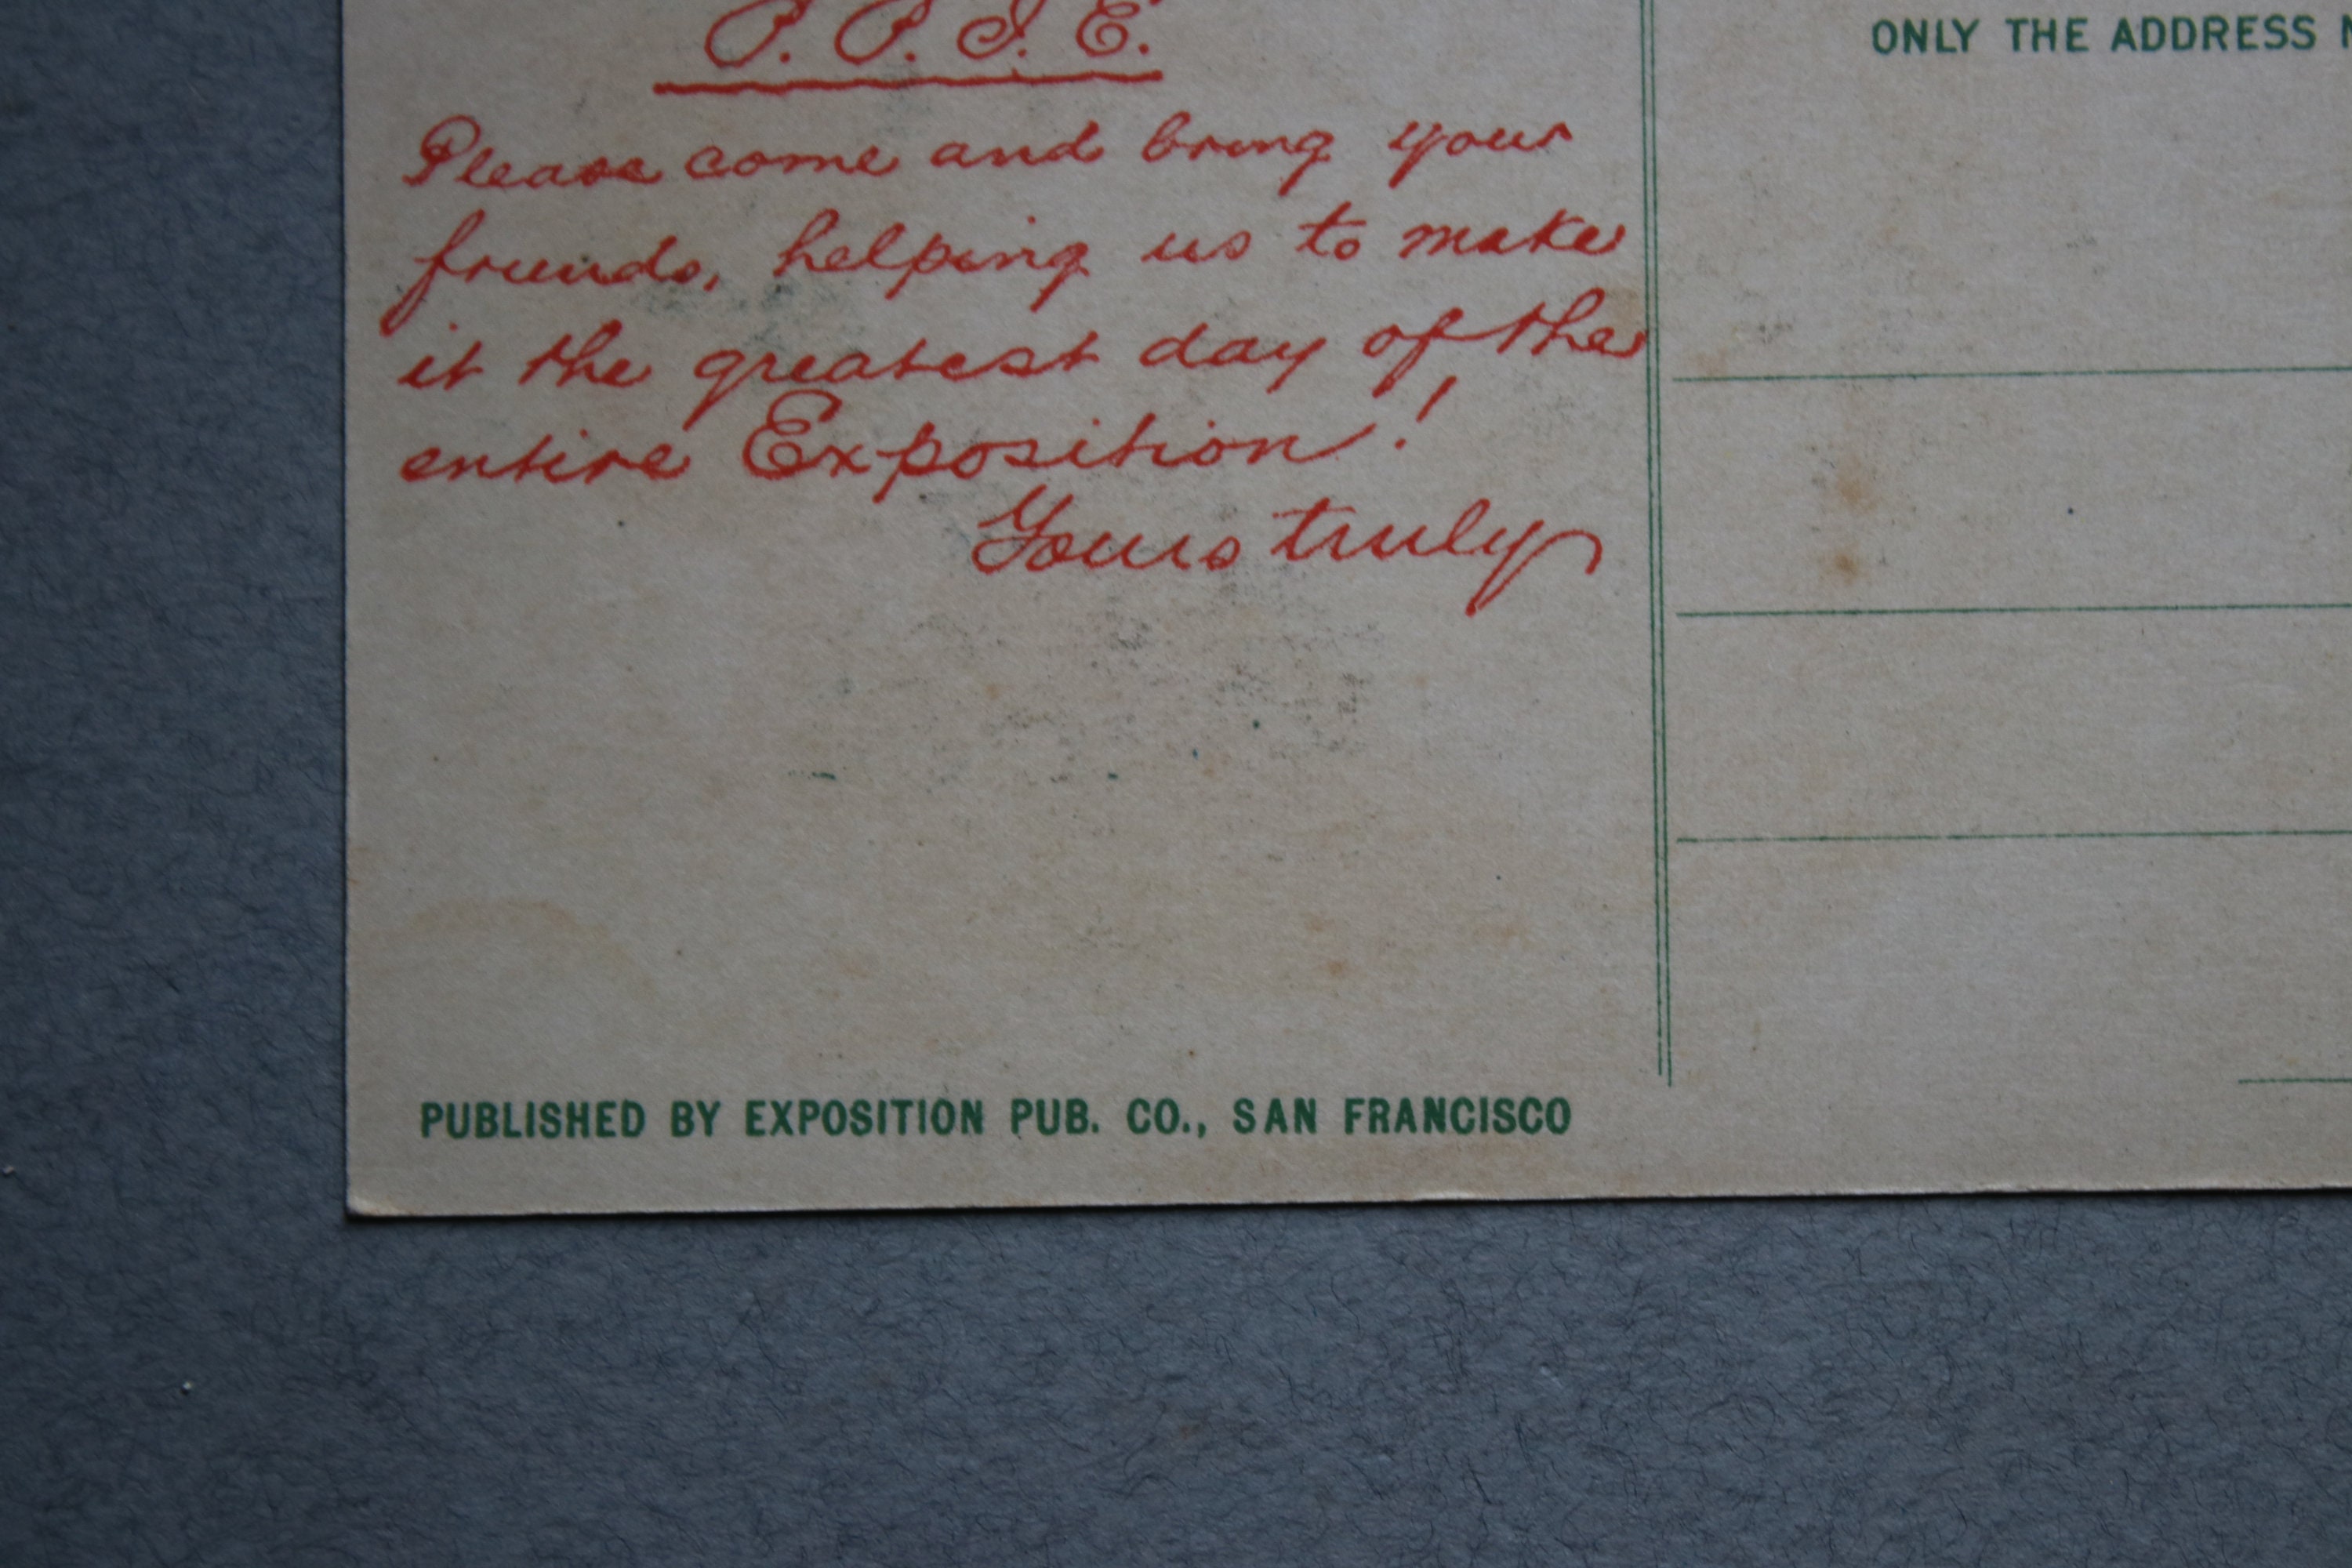 P. P. I. E.
ONLY THE ADDRESS
Please come and bring your
friends, helping us to make
it the greatest day of the
entire Exposition!
Yours truly
PUBLISHED BY EXPOSITION PUB. CO., SAN FRANCISCO